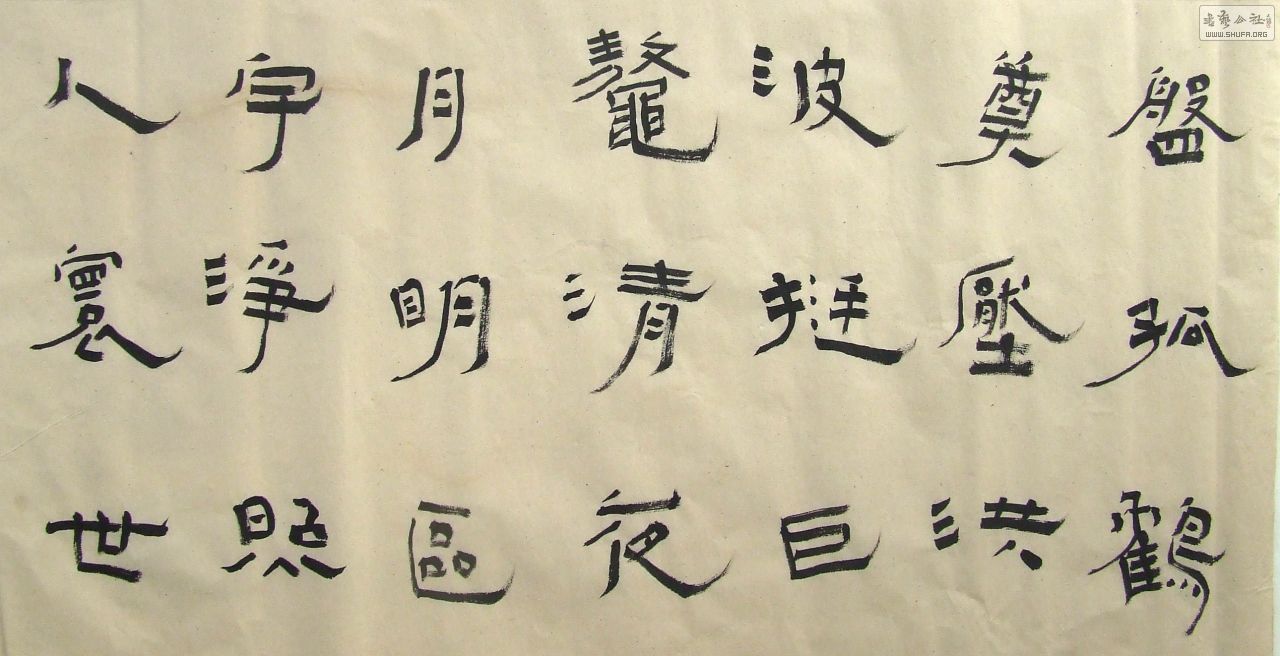 盤孤鶴
奠壓洪
波挺巨
鼇清夜
月明區
宇淨照
人寰世
書藝公社
WWW.SHUFA.ORG